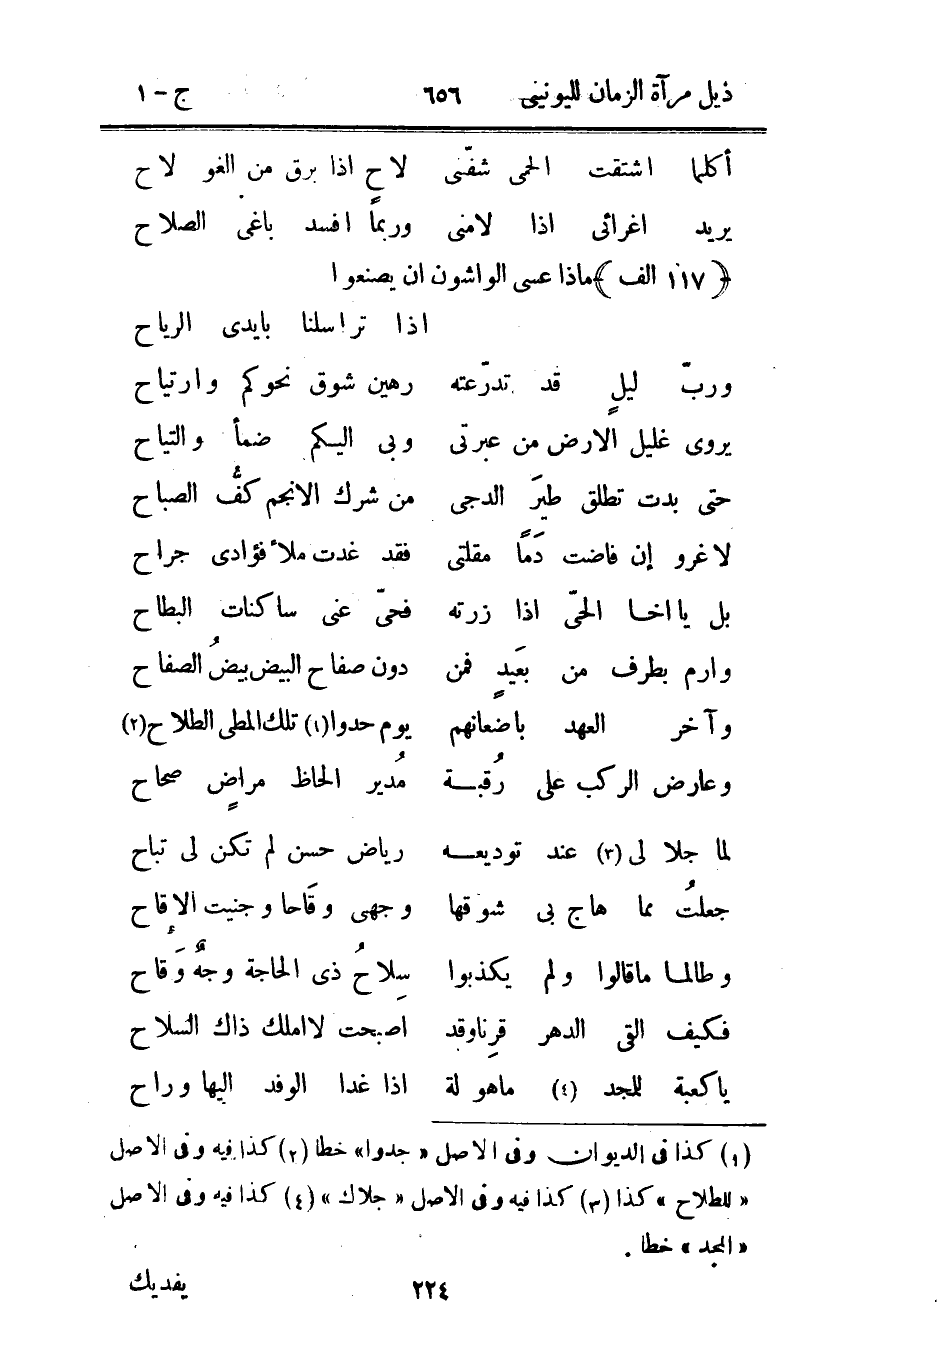 ذيل مرآة الزمان لليونينى ٦٥٦ ج - ١
أكلما اشتقت الحمى شفّنى لاحٍ اذا برق من الغو لاح
يريد اغرائى اذا لامنى وربماً افسد باغى الصلاح
﴿١١٧ الف﴾ ماذا عسى الواشون ان يصنعوا
اذا تراسلنا بايدى الرياح
وربّ ليلٍ قد تدرّعته رهين شوق نحوكم وارتياح
يروى غليل الارض من عبرتى وبى اليكم ضمأ والتياح
حتى بدت تطلق طيرَ الدجى من شرك الانجم كفُّ الصباح
لاغرو إن فاضت دَمًا مقلتى فقد غدت ملأ فؤادى جراح
بل يااخا الحىّ اذا زرته فحىّ عنى ساكنات البطاح
وارم بطرف من بعَيدٍ فمن دون صفاح البيض بيضُ الصفاح
وآخر العهد باضعانهم يوم حدوا(١) تلك المطى الطلاح(٢)
وعارض الركب على رُقبة مُدير الحاظ مراضٍ صحاح
لما جلا لى (٣) عند توديعه رياض حسن لم تكن لى تباح
جعلتُ مما هاج بى شوقها وجهى وقَاحا وجنيت الإقاح
وطالما ماقالوا ولم يكذبوا سِلاحُ ذى الحاجة وجهٌ وَقاح
فكيف القى الدهر قرِناوقد اصبحت لااملك ذاك السلاح
ياكعبة للمجد (٤) ماهولة اذا غدا الوفد اليها وراح
(١) كذا فى الديوان وفى الاصل « جدوا» خطا (٢) كذا فيه وفى الاصل
« للطلاح » كذا (٣) كذا فيه وفى الاصل « جلاك » (٤) كذا فيه وفى الاصل
« المجد » خطا .
٢٢٤ يفديك